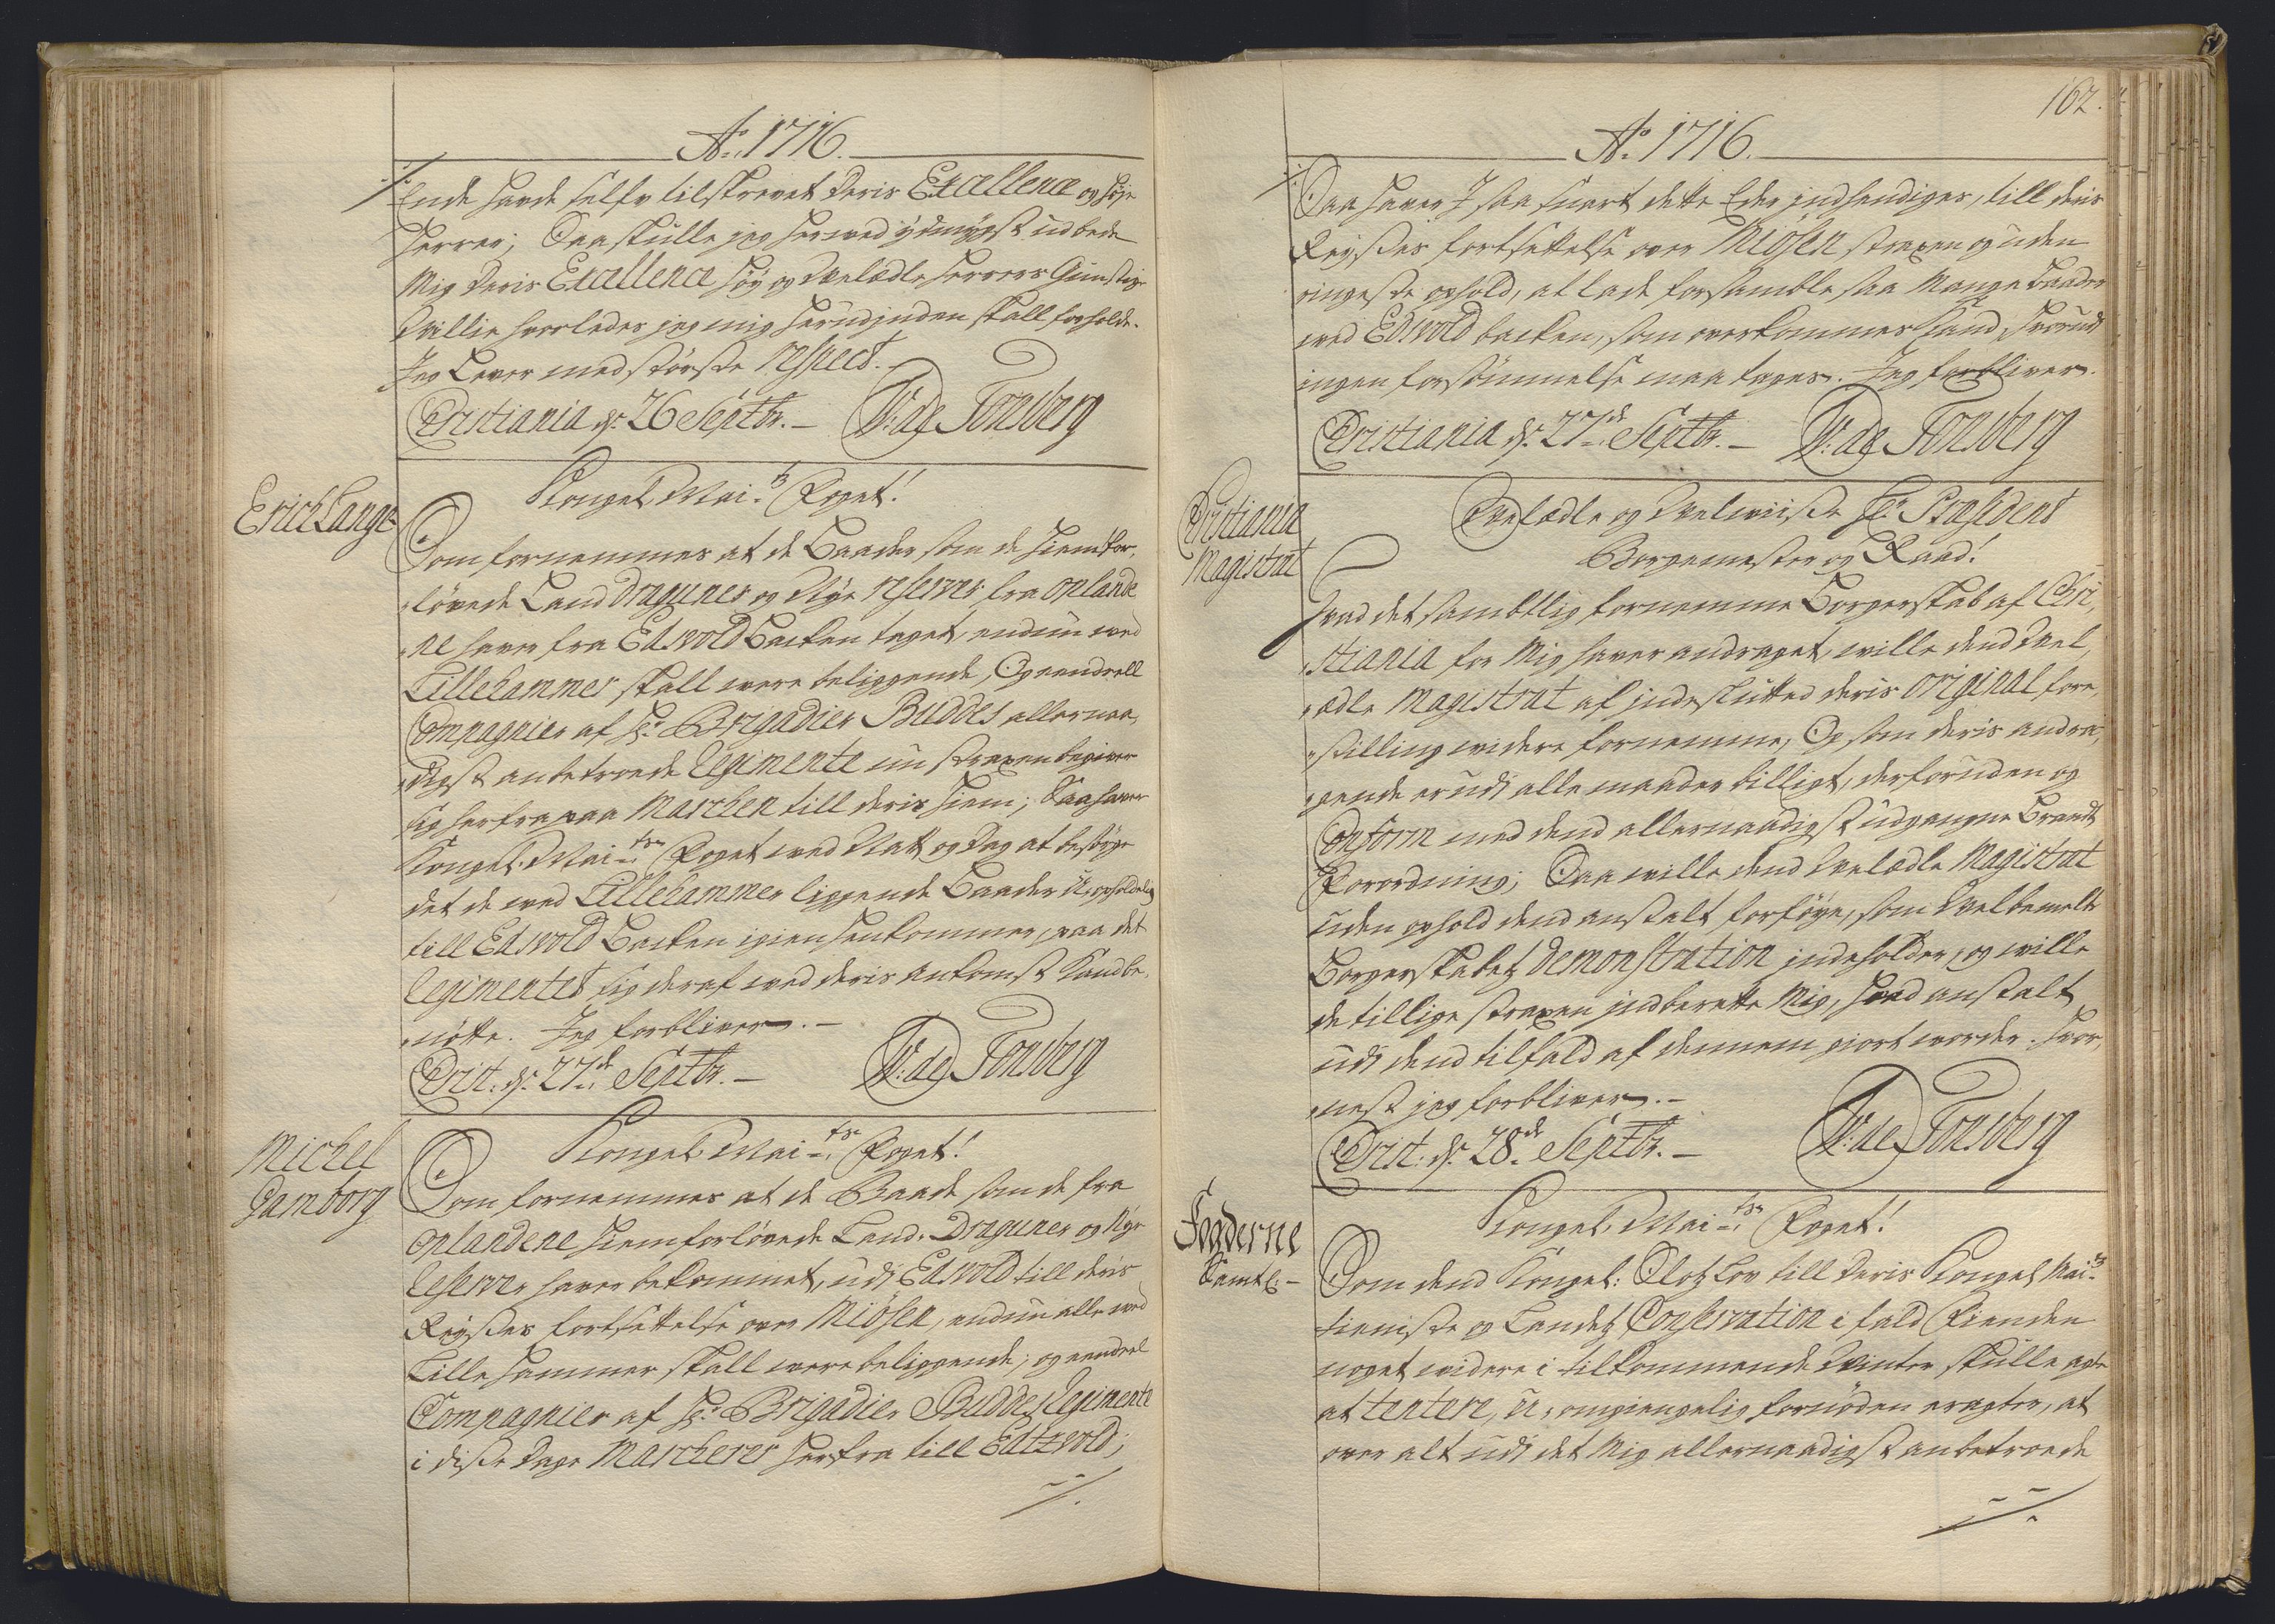 Ao. 1716.
Ende hafde selfv tilskrevet deris Excellence og høye
Herrer; Saa skulle jeg herved ydmygst udbede
Mig deris Excellence Høy og Velædle Herrers Gunstige
Villie hvorledes jeg mig herudjnden skall forholde.
Jeg Lever med største respect.
Christiania d. 26 Septbr. – W: de Tonsberg
Erich Lange
Kongel. Mai.tz Foget!
Som fornemmes at de Baader som de Hiemfor-
løvede Land Draguner og Nye reserver fra Oplande
ne haver fra Edsvold Backen taget, endnu ved
Lillehammer skall være beliggende, Og eendeell
Compagnier af Hr. Brigadier Buddes allernaa-
digst anbetroede Regimente nu straxen begiver
sig herfra paa Marchen till deris Hiem; Saa haver
Kongel. Mai.ts Foget ved Natt og Dag at besørge
det de ved Lillehammer liggende Baader U-opholdelig
till Edsvold Backen igien henkommer, paa det
Regimentet sig deraf ved deris ankomst Kand be-
nøtte. Jeg forbliver. –
Christ: d. 27de Septbr. – W: de Tonsberg
Michel
Hamborg
Kongel. Mai.ts Foget!
Som fornemmes at de Baade som de fra
Oplandene Hiemforløvede Land-Draguner og Nye
Reserver haver bekommet, udj Edsvold till deris
Reyses fortsettelse over Miøsen, endnu alle ved
Lillehammer skall være beliggende; og eendeel
Compagnier af Hr. Brigadier Buddes Regimente
i disse dage Marcherer herfra till Edtzvold;
162.
Ao. 1716.
Saa haver I saa snart dette Eder jndhendiges, till deris
Reyses fortsettelse over Miøsen straxen og uden
ringeste ophold, at lade forsamble saa Mange Baader
ved Edsvold backen, som overkommes Kand, hvorudj
ingen forsømmelse maa tages. Jeg forbliver.
Christiania d. 27de Septbr. – W: de Tonsberg
Christiania
Magistrat
Velædle og Velviise Hr. Præsident
Borgemester og Raad!
Hvad det sambtlig fornemme Borgerskab af Chri-
stiania for Mig haver andraget, ville dend Vel-
ædle Magistrat af jndeslutted deris original fore-
stilling videre fornemme, Og som deris andra-
gende er udj alle maader billigt, derforuden og
Conform med dend allernaadigst udgangne Brandt
Forordning; Saa ville dend Velædle Magistrat
uden ophold dend anstalt forføye, som Velbemelte
Borgerskabetz Demonstration jndeholder, og ville
de tillige straxen jndberette Mig, hvad anstalt
udj dend tilfald af dennem giort vorder. Hvor-
nest jeg forbliver. –
Christ: d. 28de Septbr. – W: de Tonsberg
Fogderne
Samtl: –
Kongel. Mai.ts Foget!
Som dend Kongel: Slotz Lov till deris Kongel Mai.tz
tieniste og Landetz Conservation i fald Fienden
noget videre i tilkommende Vinter skulle agte
at tentere, U-omgiengelig fornøden eragter, at
over alt udj det Mig allernaadigst anbetroede